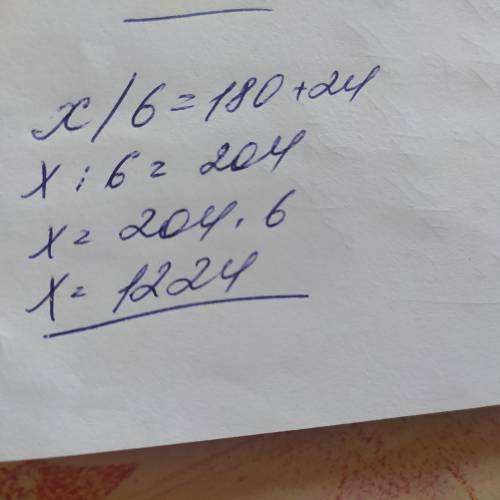 x/6=180+24
x:6=204
x=204·6
x=1224